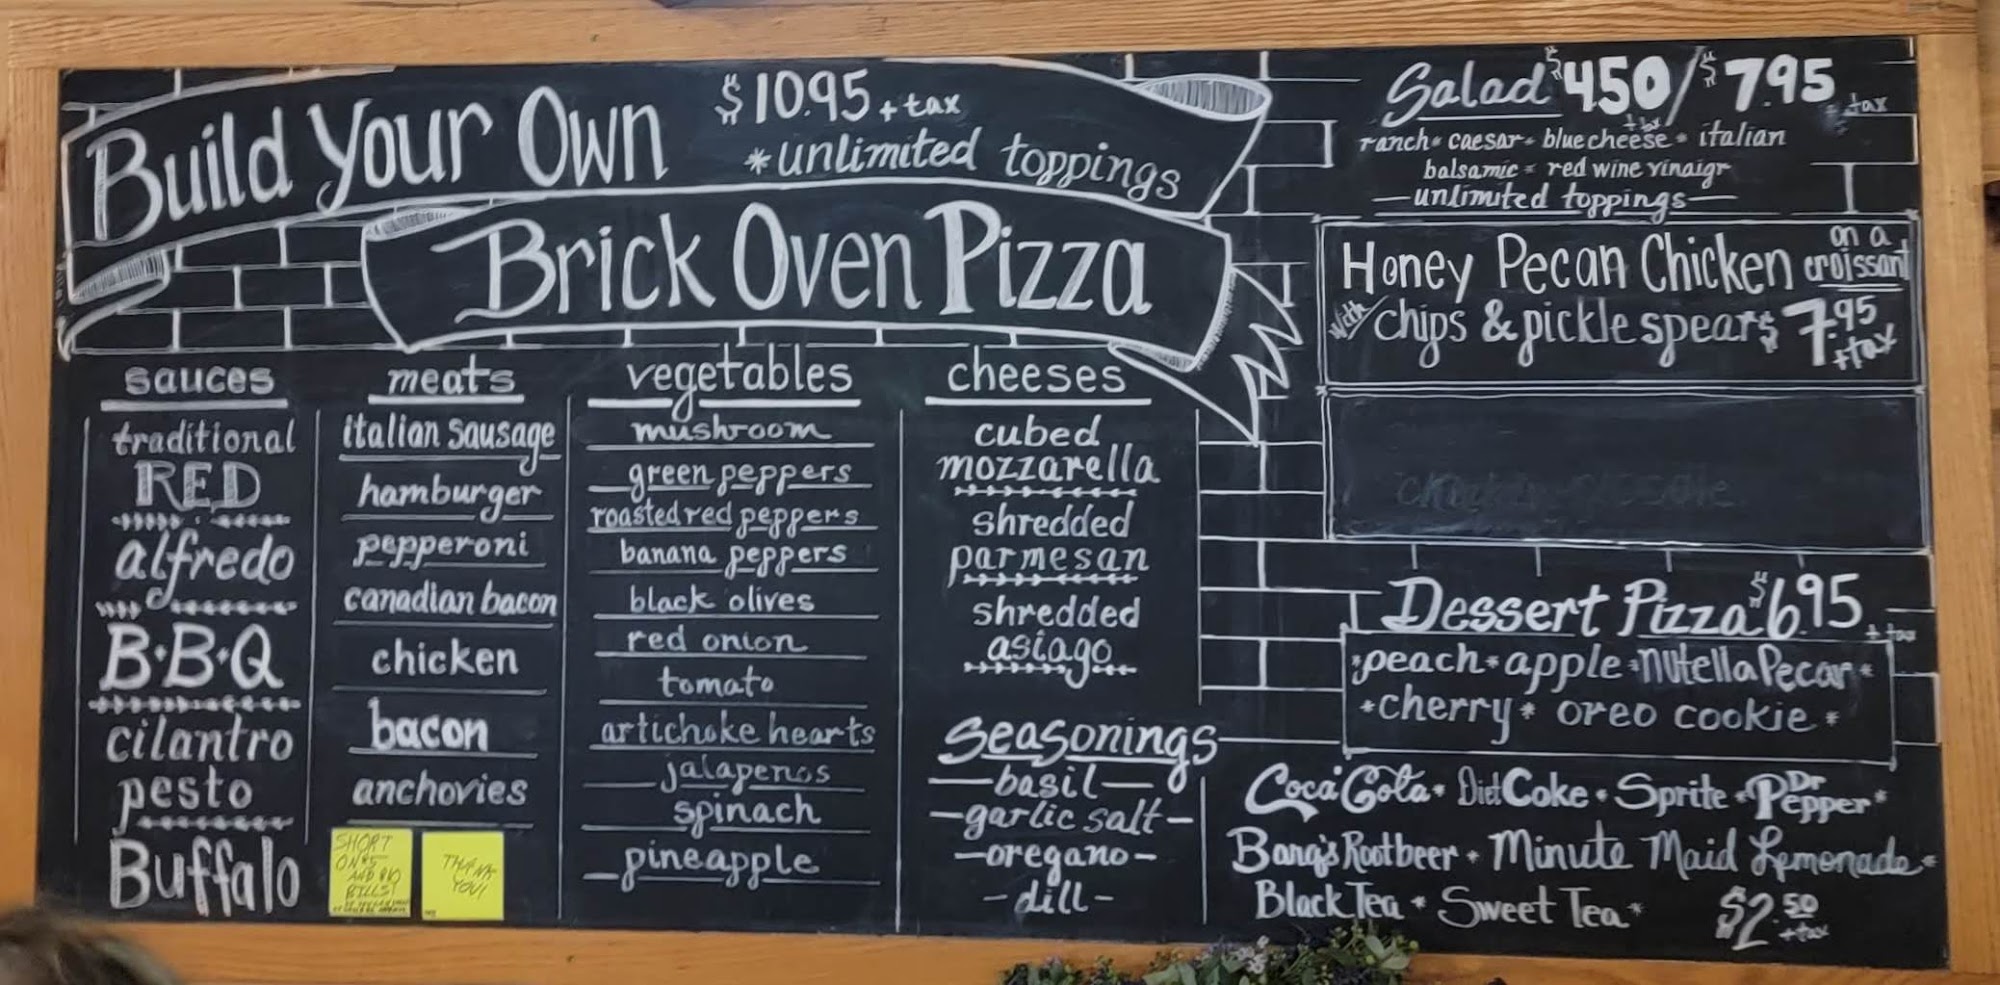 Build Your Own
$10.95 + tax
*unlimited toppings
Brick Oven Pizza
sauces
traditional
RED
alfredo
B•B•Q
cilantro
pesto
Buffalo
meats
italian sausage
hamburger
pepperoni
canadian bacon
chicken
bacon
anchovies
SHORT
ON $5
AND
BILLS!
THANK
YOU!
vegetables
mushroom
green peppers
roasted red peppers
banana peppers
black olives
red onion
tomato
artichoke hearts
jalapenos
spinach
pineapple
cheeses
cubed
mozzarella
shredded
parmesan
shredded
asiago
Seasonings
basil
garlic salt
oregano
dill
Salad $4.50/$7.95
+ tax + tax
ranch • caesar • blue cheese • italian
balsamic • red wine vinaigr
unlimited toppings
Honey Pecan Chicken on a croissant
with chips & pickle spears $7.95 + tax
Dessert Pizza $6.95 + tax
*peach * apple * Nutella Pecan *
*cherry * oreo cookie *
Coca Cola • Diet Coke • Sprite • Dr Pepper *
Barq's Rootbeer • Minute Maid Lemonade *
Black Tea * Sweet Tea * $2.50 + tax